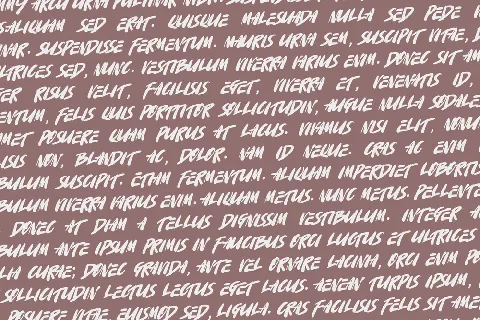 ALIQUAM SED ERAT. QUISQUE MALESUADA NULLA SED PEDE
NAR. SUSPENDISSE FERMENTUM. MAURIS URNA SEM, SUSCIPIT VITAE,
LTRICES SED, NUNC. VESTIBULUM VIVERRA VARIUS ENIM. DONEC SIT AM
ER RISUS VELIT, FACILISIS EGET, VIVERRA ET, VENENATIS ID,
ENTUM, FELIS QUIS PORTTITOR SOLLICITUDIN, AUGUE NULLA SODALE
MET POSUERE QUAM PURUS AT LACUS. VIVAMUS NISI ELIT, NONU
LISIS NON, BLANDIT AC, DOLOR. NAM ID NEQUE. CRAS AC ENIM
BULUM SUSCIPIT. ETIAM FERMENTUM. ALIQUAM IMPERDIET LOBORTIS
BULUM VIVERRA VARIUS ENIM. ALIQUAM METUS. NUNC METUS. PELLENTE
DONEC AT DIAM A TELLUS DIGNISSIM VESTIBULUM. INTEGER A
BULUM ANTE IPSUM PRIMIS IN FAUCIBUS ORCI LUCTUS ET ULTRICES
LIA CURAE; DONEC GRAVIDA, ANTE VEL ORNARE LACINIA, ORCI ENIM PO
SOLLICITUDIN LECTUS LECTUS EGET LACUS. AENEAN TURPIS IPSUM,
POSUERE VITAE, EUISMOD SED, LIGULA. CRAS FACILISIS FELIS SIT AME